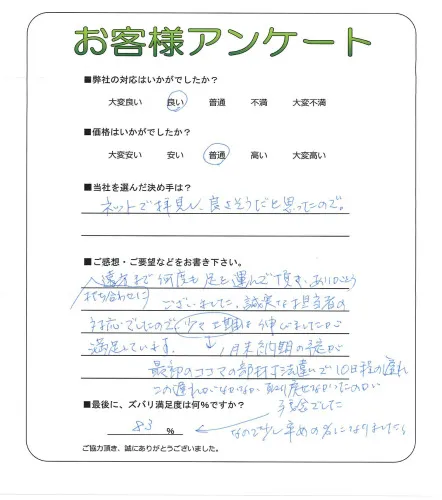 お客様アンケート
■弊社の対応はいかがでしたか?
大変良い 良い 普通 不満 大変不満
■価格はいかがでしたか?
大変安い 安い 普通 高い 大変高い
■当社を選んだ決め手は?
ネットで拝見し、良さそうだと思ったので。
■ご感想・ご要望などをお書き下さい。
まで何度も足を運んで頂き、ありがとう
打ち合わせに
ございました。誠実な担当者の
対応でしたので 少々工期は伸びましたが
満足しています。 → 月末納期の予定が
最初のココマの部材寸法違いで10日程の遅れ
この遅れがなかなか取り戻せなかったのが
残念でした
■最後に、ズバリ満足度は何%ですか?
83 %
なので少し辛めの%になりました
ご協力頂き、誠にありがとうございました。